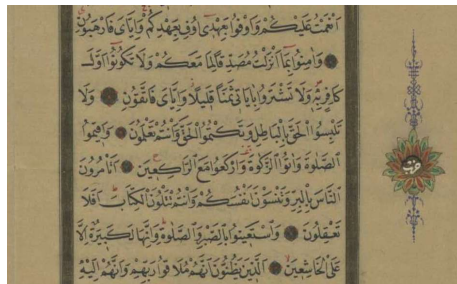 اَنْعَمْتُ عَلَيْكُمْ وَاَوْفُوا بِعَهْدٖٓي اُوفِ بِعَهْدِكُمْ وَاِيَّايَ فَارْهَبُونِ
وَاٰمِنُوا بِمَٓا اَنْزَلْتُ مُصَدِّقًا لِمَا مَعَكُمْ وَلَا تَكُونُٓوا اَوَّلَ
كَافِرٍ بِهٖ وَلَا تَشْتَرُوا بِاٰيَاتٖي ثَمَنًا قَلٖيلًا وَاِيَّايَ فَاتَّقُونِ وَلَا
تَلْبِسُوا الْحَقَّ بِالْبَاطِلِ وَتَكْتُمُوا الْحَقَّ وَاَنْتُمْ تَعْلَمُونَ وَاَقٖيمُوا
الصَّلٰوةَ وَاٰتُوا الزَّكٰوةَ وَارْكَعُوا مَعَ الرَّاكِعٖينَ اَتَاْمُرُونَ
النَّاسَ بِالْبِرِّ وَتَنْسَوْنَ اَنْفُسَكُمْ وَاَنْتُمْ تَتْلُونَ الْكِتَابَ اَفَلَا
تَعْقِلُونَ وَاسْتَعٖينُوا بِالصَّبْرِ وَالصَّلٰوةِ وَاِنَّهَا لَكَبٖيرَةٌ اِلَّا
عَلَى الْخَاشِعٖينَ اَلَّذٖينَ يَظُنُّونَ اَنَّهُمْ مُلَاقُوا رَبِّهِمْ وَاَنَّهُمْ اِلَيْهِ